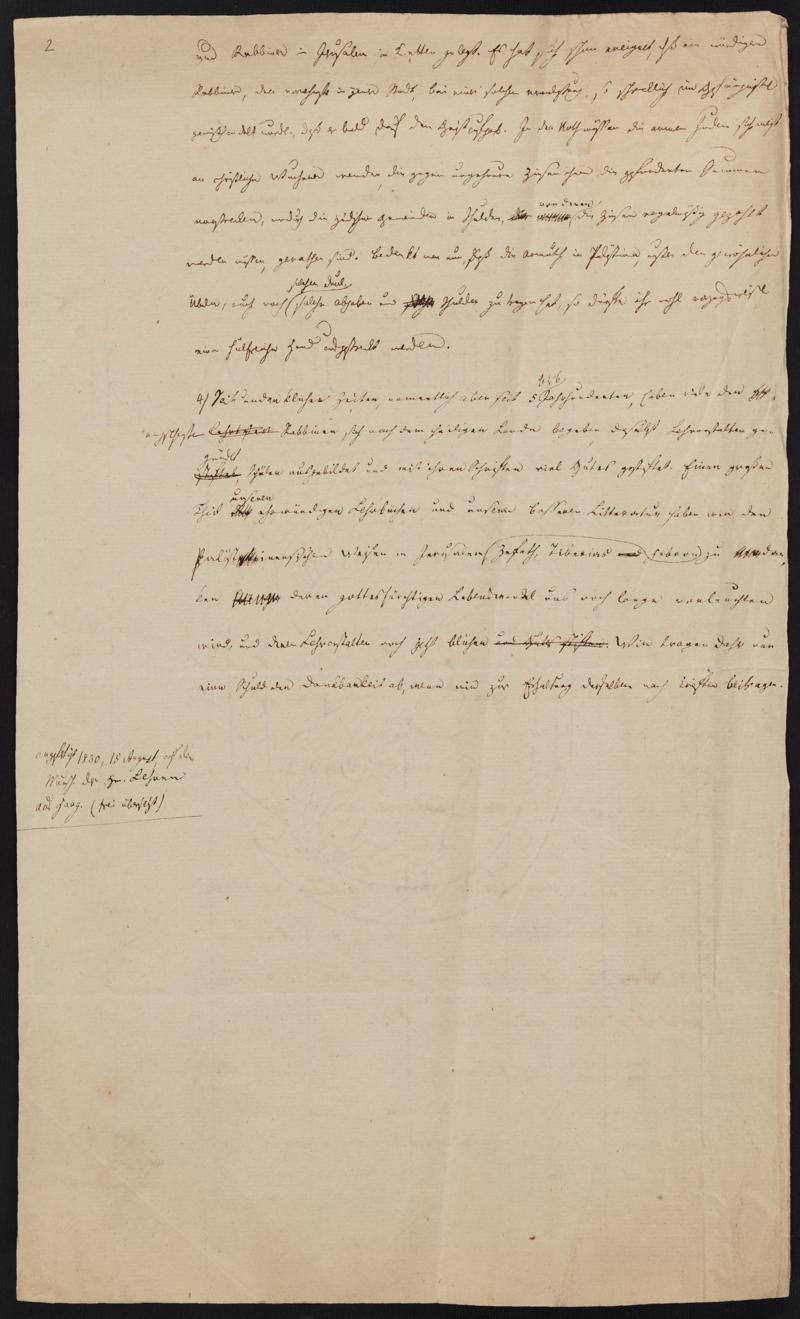 2
und Rabbiner in Jerusalem in Ketten gelegt. Es hat sich schon ereignet, daß ein würdiger
Rabbiner, der vornehmste in jener Stadt, bei einer solchen so schrecklich im Gefängniße
gemißhandelt wurde, daß er bald darauf den Geist aufgab. In der Noth müssen die armen Juden sich meist
an christliche Wucherer wenden, die gegen ungeheure Zinsen ihnen die geforderten Summen
vorstrecken, wodurch die jüdischen Gemeinden in Schulden, von denen die Zinsen regelmäßig gezahlt
werden müssen, gerathen sind. Bedenkt man nun, daß die Armuth in Palästina, außer den gewöhnlichen
Übeln, auch noch solchen Druck, solche Abgaben und Schulden zu tragen hat, so dürfte ihr wohl
eine hülfreiche Hand werden.
4) Seit undenklichen Zeiten, namentlich aber seit 5 bis 6 Jahrhunderten, haben viele der
angesehensten Rabbinen sich nach dem heiligen Lande begeben, daselbst Lehranstalten ge-
gründet, Schüler ausgebildet und mit ihren Schriften viel Gutes gestiftet. Einen großen
Theil unserer ehrwürdigen Lehrbücher und unserer besseren Litteratur haben wir den
Palästinensischen Weisen in Jerusalem (Zefath, Tiberias und Hebron) zu verdan-
ken deren gottesfürchtigen Lebenswandel uns noch lange vorleuchten
wird, und deren Lehranstalten noch jetzt blühen und Gutes stiften. Wir tragen daher nur
eine Schuld der Dankbarkeit ab, wenn wir zur Erhaltung derselben nach Kräften beitragen.
aufgesetzt 1830, 15 August, auf den
Wunsch des Hr. Lehren
aus Haag. (frei übersetzt)